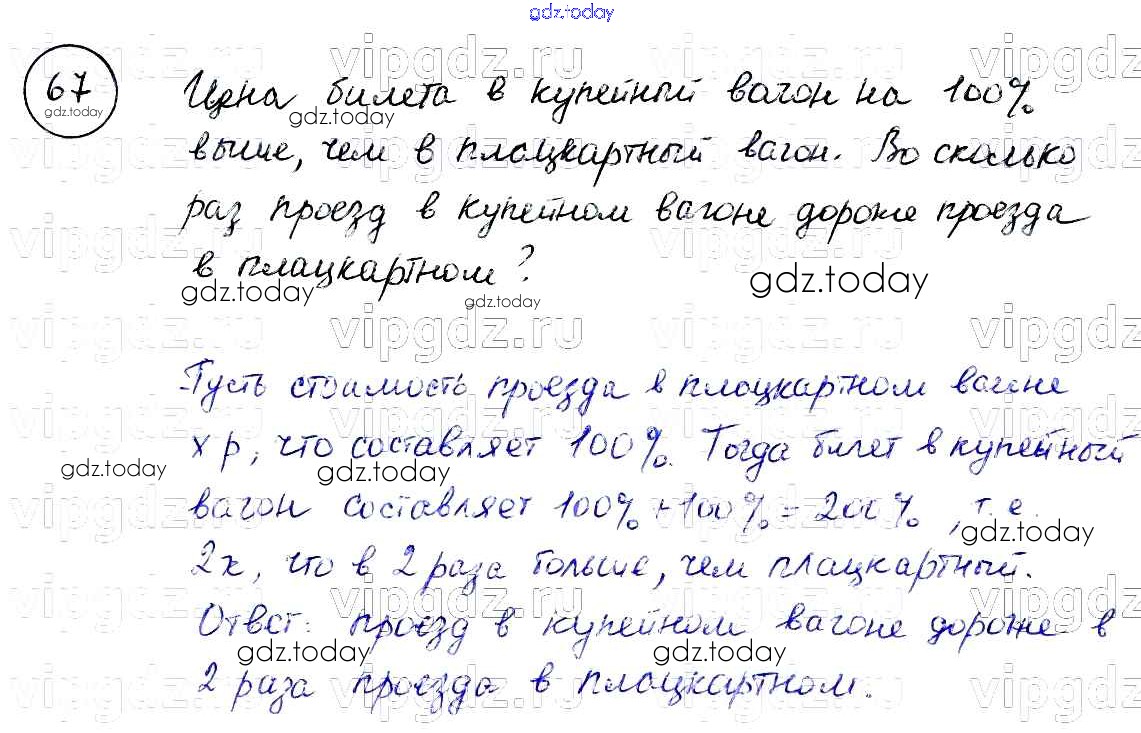 gdz.today
67
gdz.today
Цена билета в купейный вагон на 100%
gdz.today
выше, чем в плацкартный вагон. Во сколько
раз проезд в купейном вагоне дороже проезда
в плацкартном?
gdz.today gdz.today gdz.today
Пусть стоимость проезда в плацкартном вагоне
х р, что составляет 100%. Тогда билет в купейный
gdz.today
вагон составляет 100% + 100% = 200%, т.е.
gdz.today
2х, что в 2 раза больше, чем плацкартный.
Ответ: проезд в купейном вагоне дороже в
gdz.today gdz.today
2 раза проезда в плацкартном.
vipgdz.ru